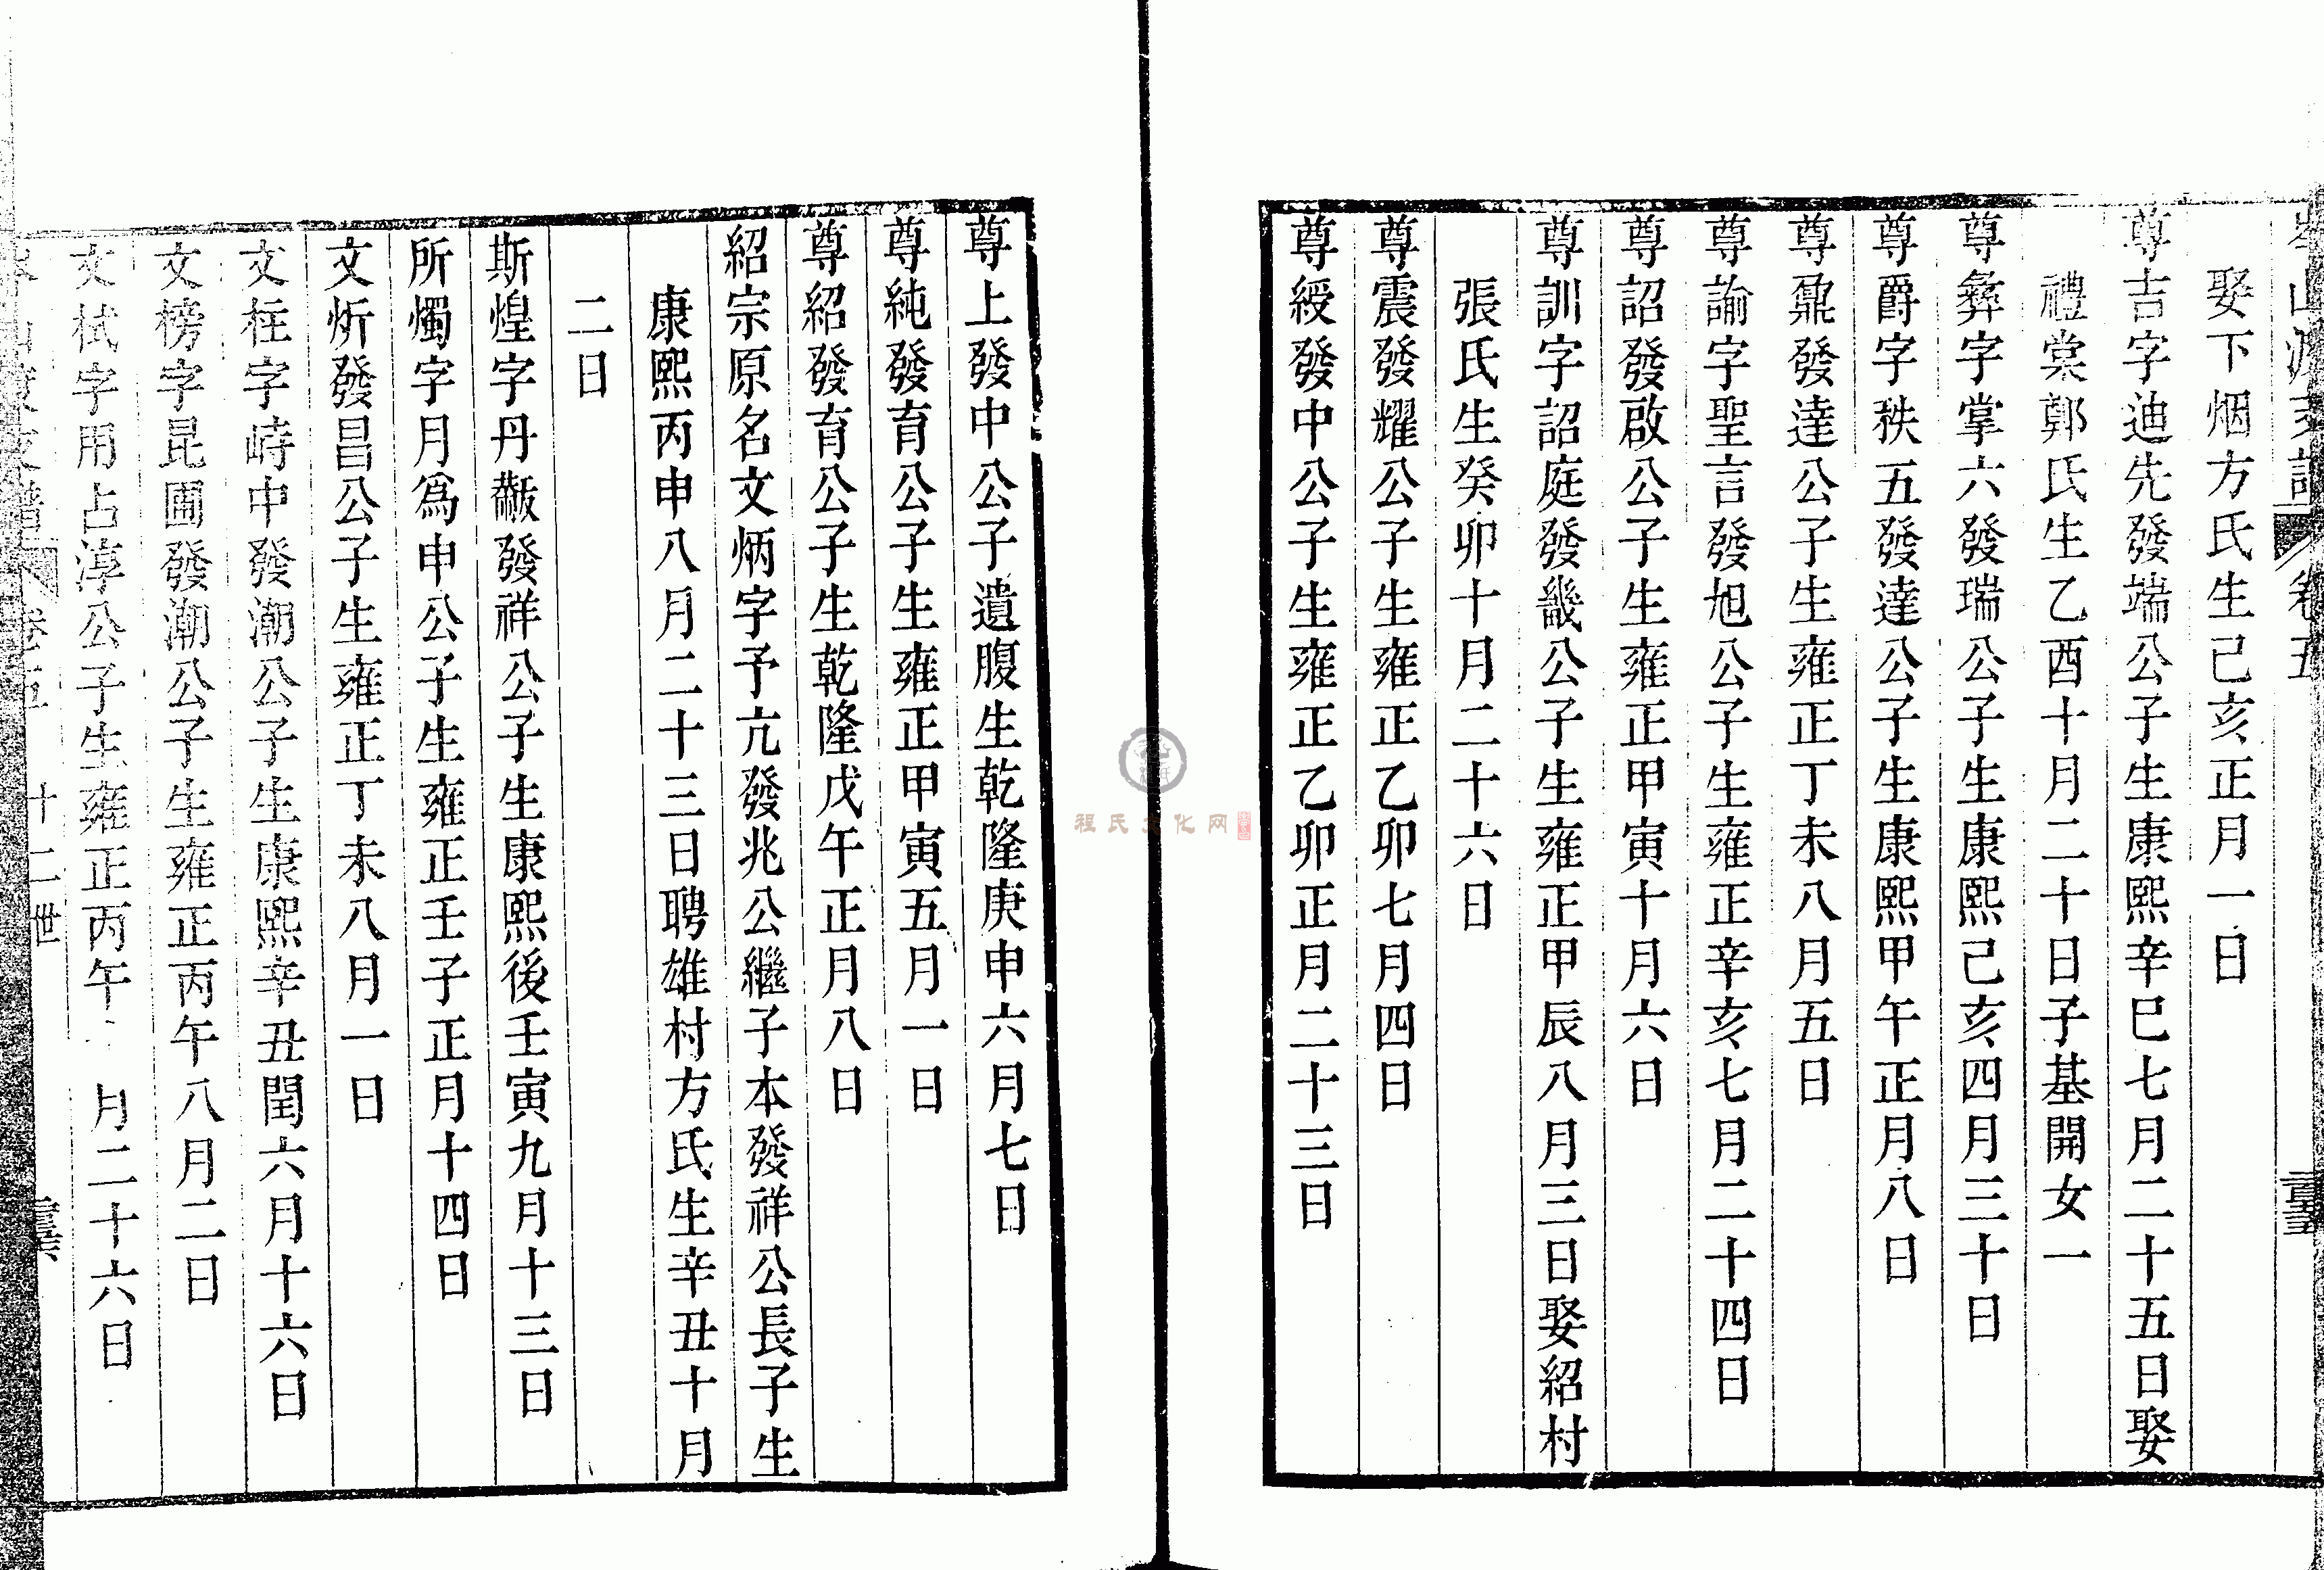 岑山渡支譜 卷五
娶下烟方氏生己亥正月一日
尊吉字迪先發端公子生康熙辛巳七月二十五日娶
禮棠鄭氏生乙酉十月二十日子基開女一
尊彝字掌六發瑞公子生康熙己亥四月三十日
尊爵字秩五發達公子生康熙甲午正月八日
尊鼐發達公子生雍正丁未八月五日
尊諭字聖言發旭公子生雍正辛亥七月二十四日
尊詔發啟公子生雍正甲寅十月六日
尊訓字詔庭發畿公子生雍正甲辰八月三日娶紹村
張氏生癸卯十月二十六日
尊震發耀公子生雍正乙卯七月四日
尊綬發中公子生雍正乙卯正月二十三日
尊上發中公子遺腹生乾隆庚申六月七日
尊純發育公子生雍正甲寅五月一日
尊紹發育公子生乾隆戊午正月八日
紹宗原名文炳字予亢發兆公繼子本發祥公長子生
康熙丙申八月二十三日聘雄村方氏生辛丑十月
二日
斯煌字丹黻發祥公子生康熙後壬寅九月十三日
所燭字月為申公子生雍正壬子正月十四日
文炘發昌公子生雍正丁未八月一日
文柱字峙中發潮公子生康熙辛丑閏六月十六日
文榜字昆圃發潮公子生雍正丙午八月二日
文栻字用占淳公子生雍正丙午 月二十六日
岑山渡支譜 卷五 十二世
程氏文化网